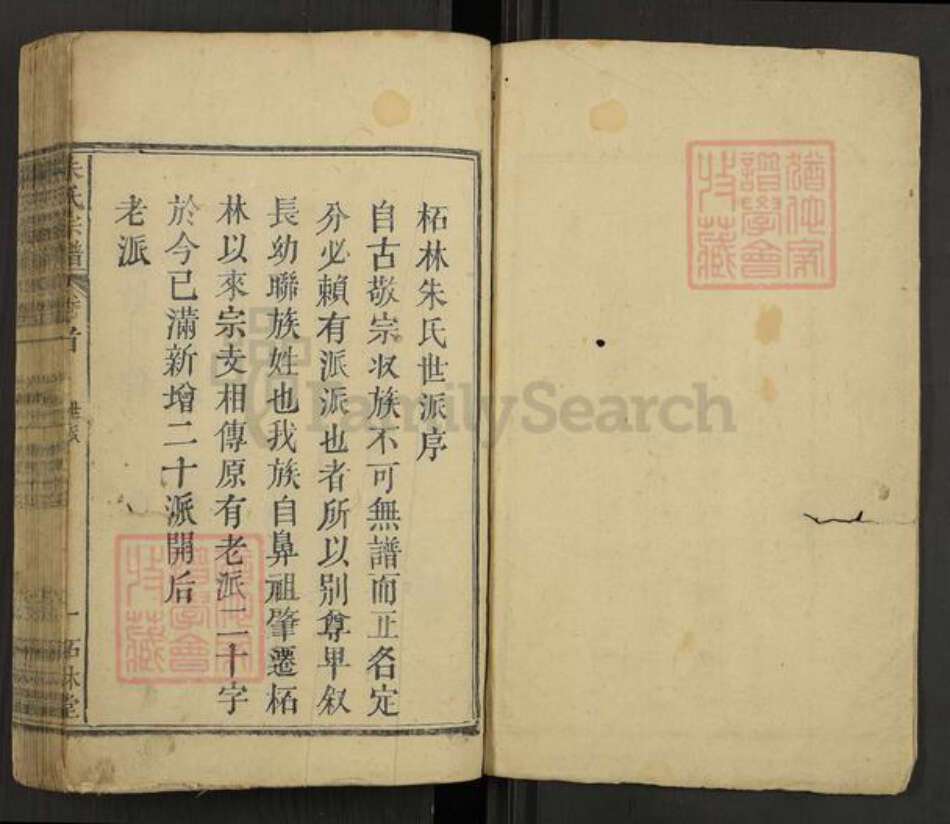 柘林朱氏世派序
自古敬宗収族不可無譜而正名定
分必賴有派派也者所以別尊卑叙
長幼聯族姓也我族自鼻祖肇遷柘
林以來宗支相傳原有老派二十字
於今已滿新增二十派開后
老派
朱氏宗譜
卷首
世派
一
柘林堂
FamilySearch
譜學會
收藏